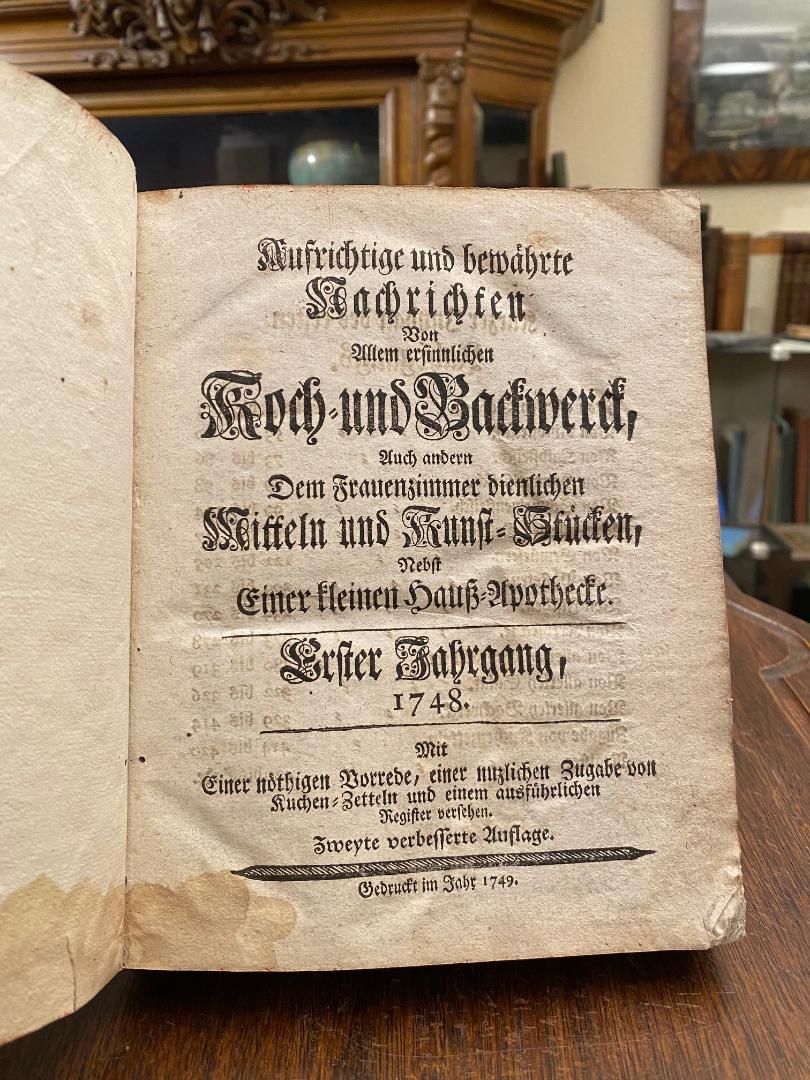 Aufrichtige und bewährte
Nachrichten
Von
Allem ersinnlichen
Koch-und Backwerck,
Auch andern
Dem Frauenzimmer dienlichen
Mitteln und Kunst-Stücken,
Nebst
Einer kleinen Hauß-Apothecke.
Erster Jahrgang,
1748.
Mit
Einer nöthigen Vorrede, einer nuzlichen Zugabe von
Kuchen-Zetteln und einem ausführlichen
Register versehen.
Zweyte verbesserte Auflage.
Gedruckt im Jahr 1749.